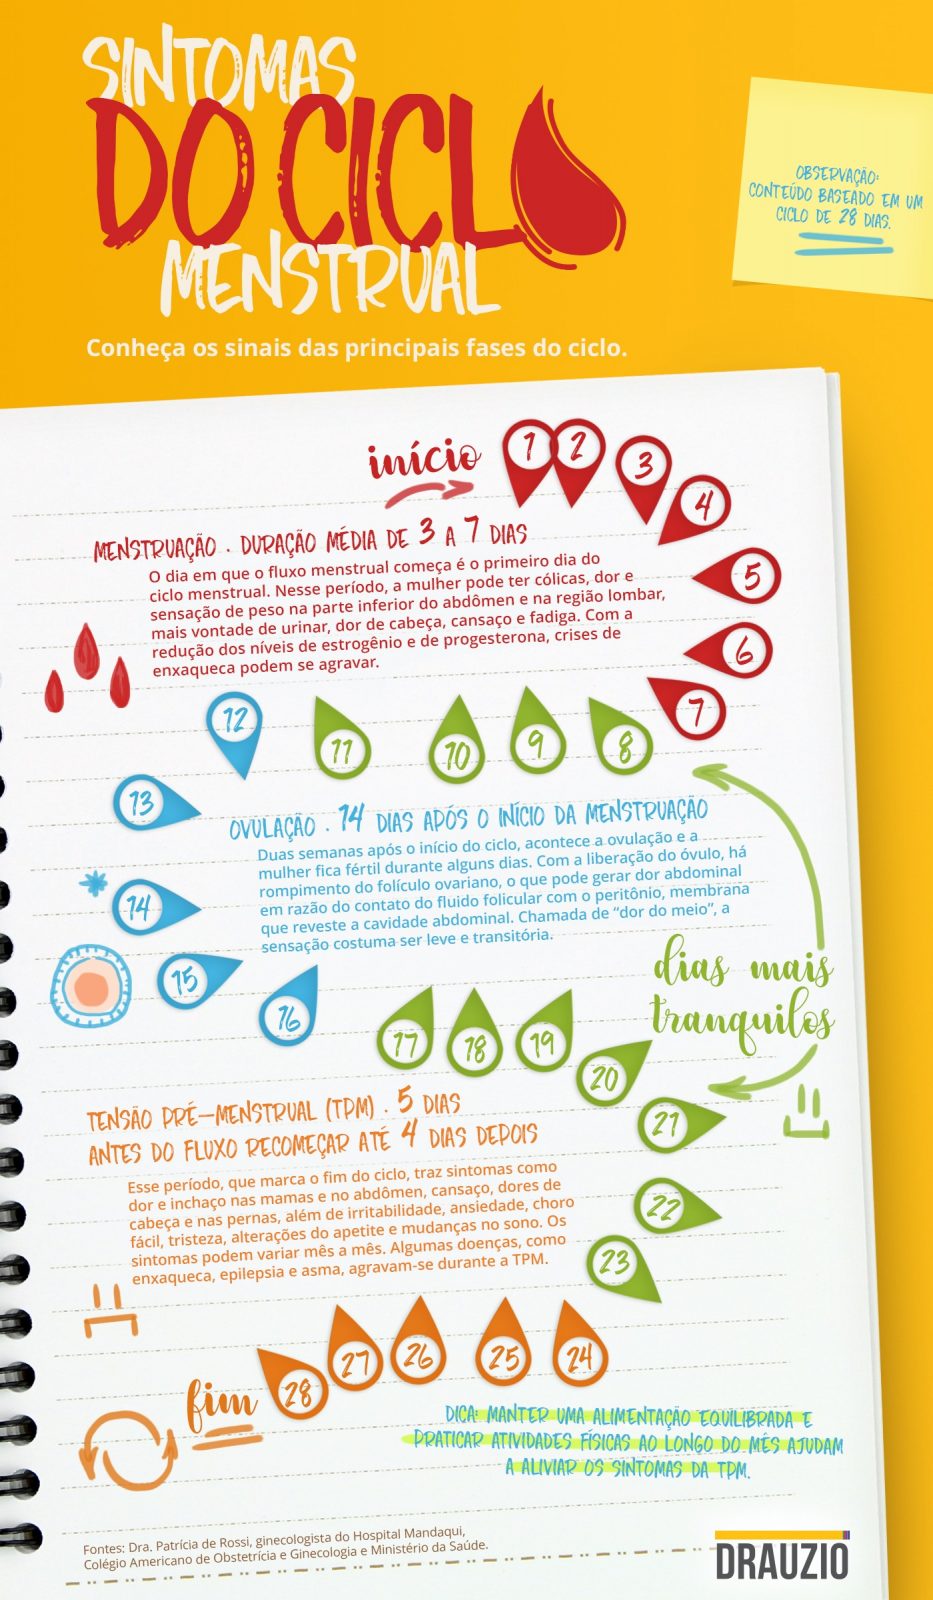 SINTOMAS
DO CICLO
MENSTRUAL
Conheça os sinais das principais fases do ciclo.
OBSERVAÇÃO:
CONTEÚDO BASEADO EM UM
CICLO DE 28 DIAS.
início
1 2 3 4 5 6 7
MENSTRUAÇÃO . DURAÇÃO MÉDIA DE 3 A 7 DIAS
O dia em que o fluxo menstrual começa é o primeiro dia do
ciclo menstrual. Nesse período, a mulher pode ter cólicas, dor e
sensação de peso na parte inferior do abdômen e na região lombar,
mais vontade de urinar, dor de cabeça, cansaço e fadiga. Com a
redução dos níveis de estrogênio e de progesterona, crises de
enxaqueca podem se agravar.
8 9 10 11
12 13 14 15 16
OVULAÇÃO . 14 DIAS APÓS O INÍCIO DA MENSTRUAÇÃO
Duas semanas após o início do ciclo, acontece a ovulação e a
mulher fica fértil durante alguns dias. Com a liberação do óvulo, há
rompimento do folículo ovariano, o que pode gerar dor abdominal
em razão do contato do fluido folicular com o peritônio, membrana
que reveste a cavidade abdominal. Chamada de “dor do meio”, a
sensação costuma ser leve e transitória.
dias mais
tranquilos
17 18 19 20 21 22 23
TENSÃO PRÉ-MENSTRUAL (TPM) . 5 DIAS
ANTES DO FLUXO RECOMEÇAR ATÉ 4 DIAS DEPOIS
Esse período, que marca o fim do ciclo, traz sintomas como
dor e inchaço nas mamas e no abdômen, cansaço, dores de
cabeça e nas pernas, além de irritabilidade, ansiedade, choro
fácil, tristeza, alterações do apetite e mudanças no sono. Os
sintomas podem variar mês a mês. Algumas doenças, como
enxaqueca, epilepsia e asma, agravam-se durante a TPM.
24 25 26 27 28
fim
DICA: MANTER UMA ALIMENTAÇÃO EQUILIBRADA E
PRATICAR ATIVIDADES FÍSICAS AO LONGO DO MÊS AJUDAM
A ALIVIAR OS SINTOMAS DA TPM.
Fontes: Dra. Patrícia de Rossi, ginecologista do Hospital Mandaqui,
Colégio Americano de Obstetrícia e Ginecologia e Ministério da Saúde.
DRAUZIO